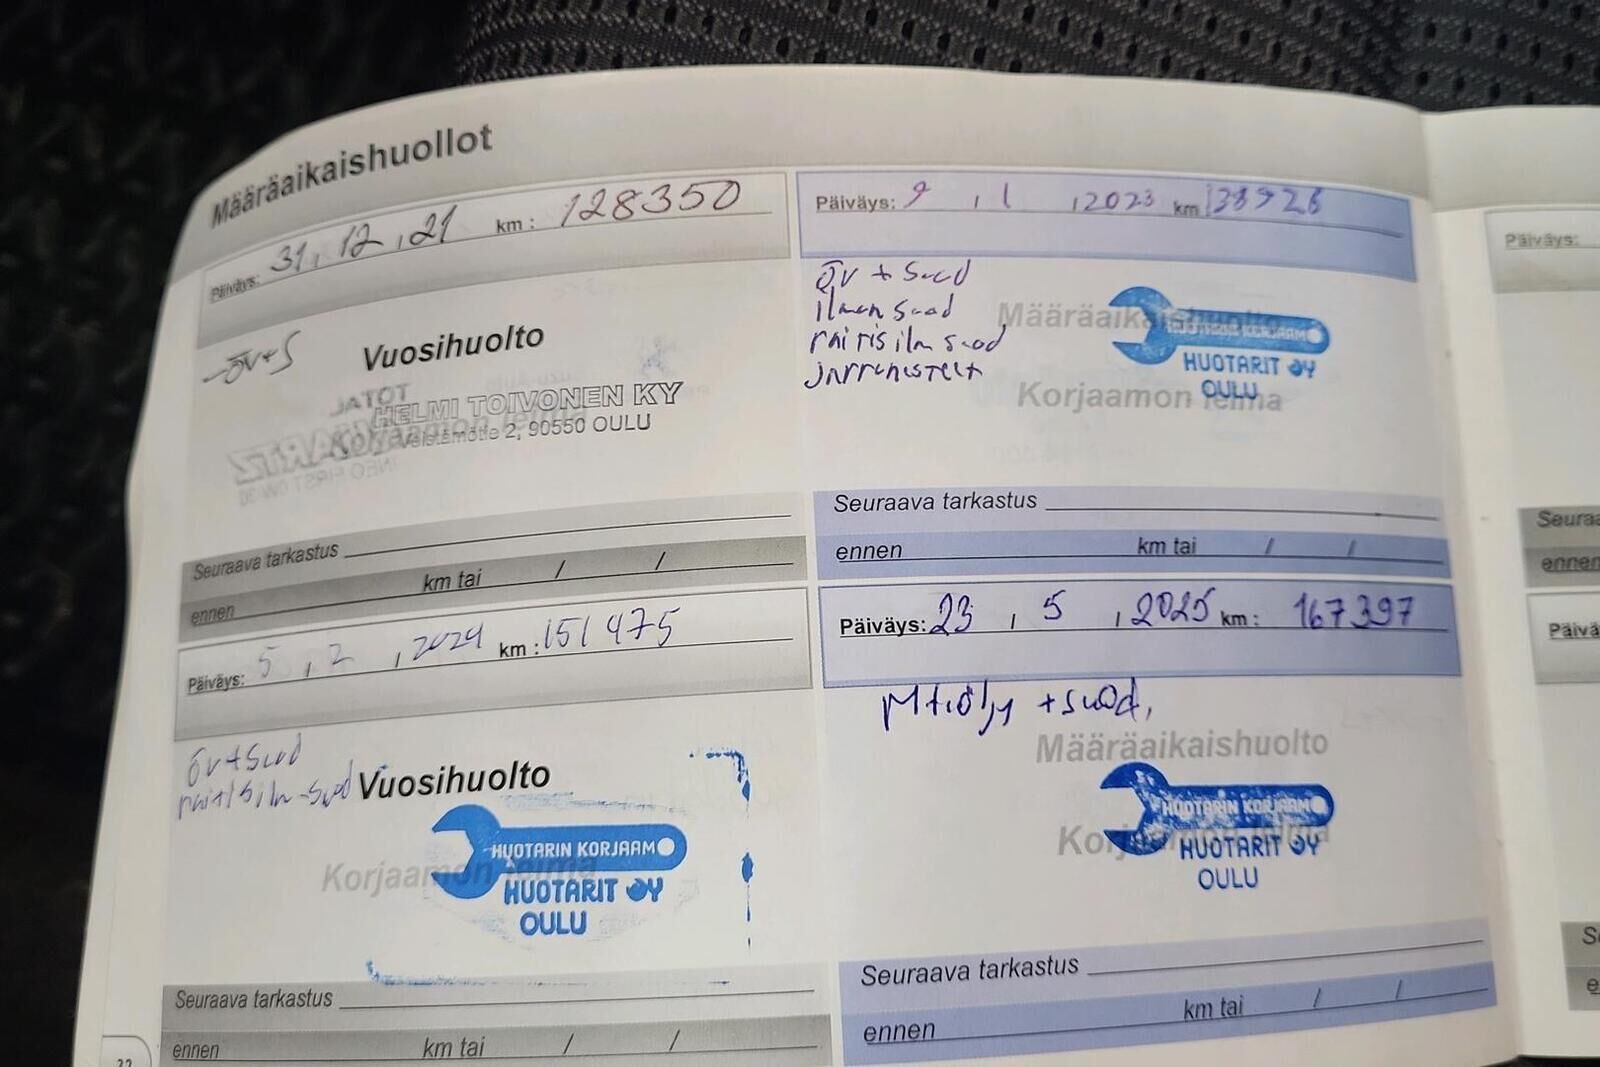 Määräaikaishuollot
Päiväys: 31, 12, 21 km: 128350
öv+S
Vuosihuolto
JATOT
HELMI TOIVONEN KY
2, 90550 OULU
Seuraava tarkastus
ennen km tai / /
Päiväys: 9, 1, 2023 km
öv + suod
ilman suod
raitis ilm suod
Määräaikaishuolto
HUOTARIN KORJAAMO
HUOTARIT OY
OULU
Korjaamon leima
Seuraava tarkastus
ennen km tai / /
Päiväys: 5, 2, 2024 km: 151475
öv+suod
raitisilm-suod
Vuosihuolto
Korjaamon leima
HUOTARIN KORJAAMO
HUOTARIT OY
OULU
Seuraava tarkastus
ennen km tai / /
22
Päiväys: 23, 5, 2025 km: 167397
Mt.öljy +suod,
Määräaikaishuolto
HUOTARIN KORJAAMO
Korjaamon leima
HUOTARIT OY
OULU
Seuraava tarkastus
ennen km tai / /
Päiväys:
ennen